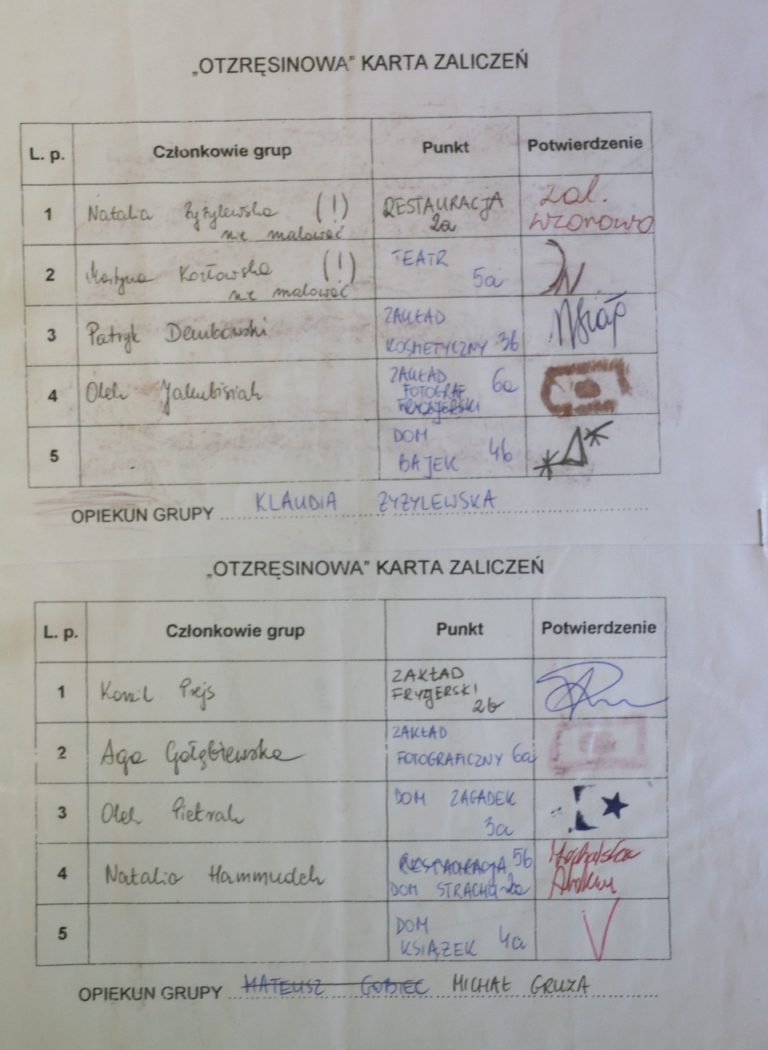 „OTZRĘSINOWA” KARTA ZALICZEŃ
L. p. Członkowie grup Punkt Potwierdzenie
1 Natalia Żyżylewska (!) RESTAURACJA zal.
nie malować 2a wzorowo
2 Martyna Kozłowska (!) TEATR
nie malować 5a
3 Patryk Dembowski ZAKŁAD
KOSMETYCZNY 3b
4 Olek Jakubisiak ZAKŁAD 6a
FOTOGRAF
5 DOM
BAJEK 4b
OPIEKUN GRUPY KLAUDIA ŻYŻYLEWSKA
„OTZRĘSINOWA” KARTA ZALICZEŃ
L. p. Członkowie grup Punkt Potwierdzenie
1 Kamil Prejs ZAKŁAD
FRYZJERSKI
2b
2 Aga Gołębiewska ZAKŁAD
FOTOGRAFICZNY 6a
3 Olek Pietrak DOM ZAGADEK
3a
4 Natalia Hammudeh RESTAURACJA 5b
DOM STRACHU
5 DOM
KSIĄŻEK 4a
OPIEKUN GRUPY MATEUSZ GOBIEC MICHAŁ GRUZA